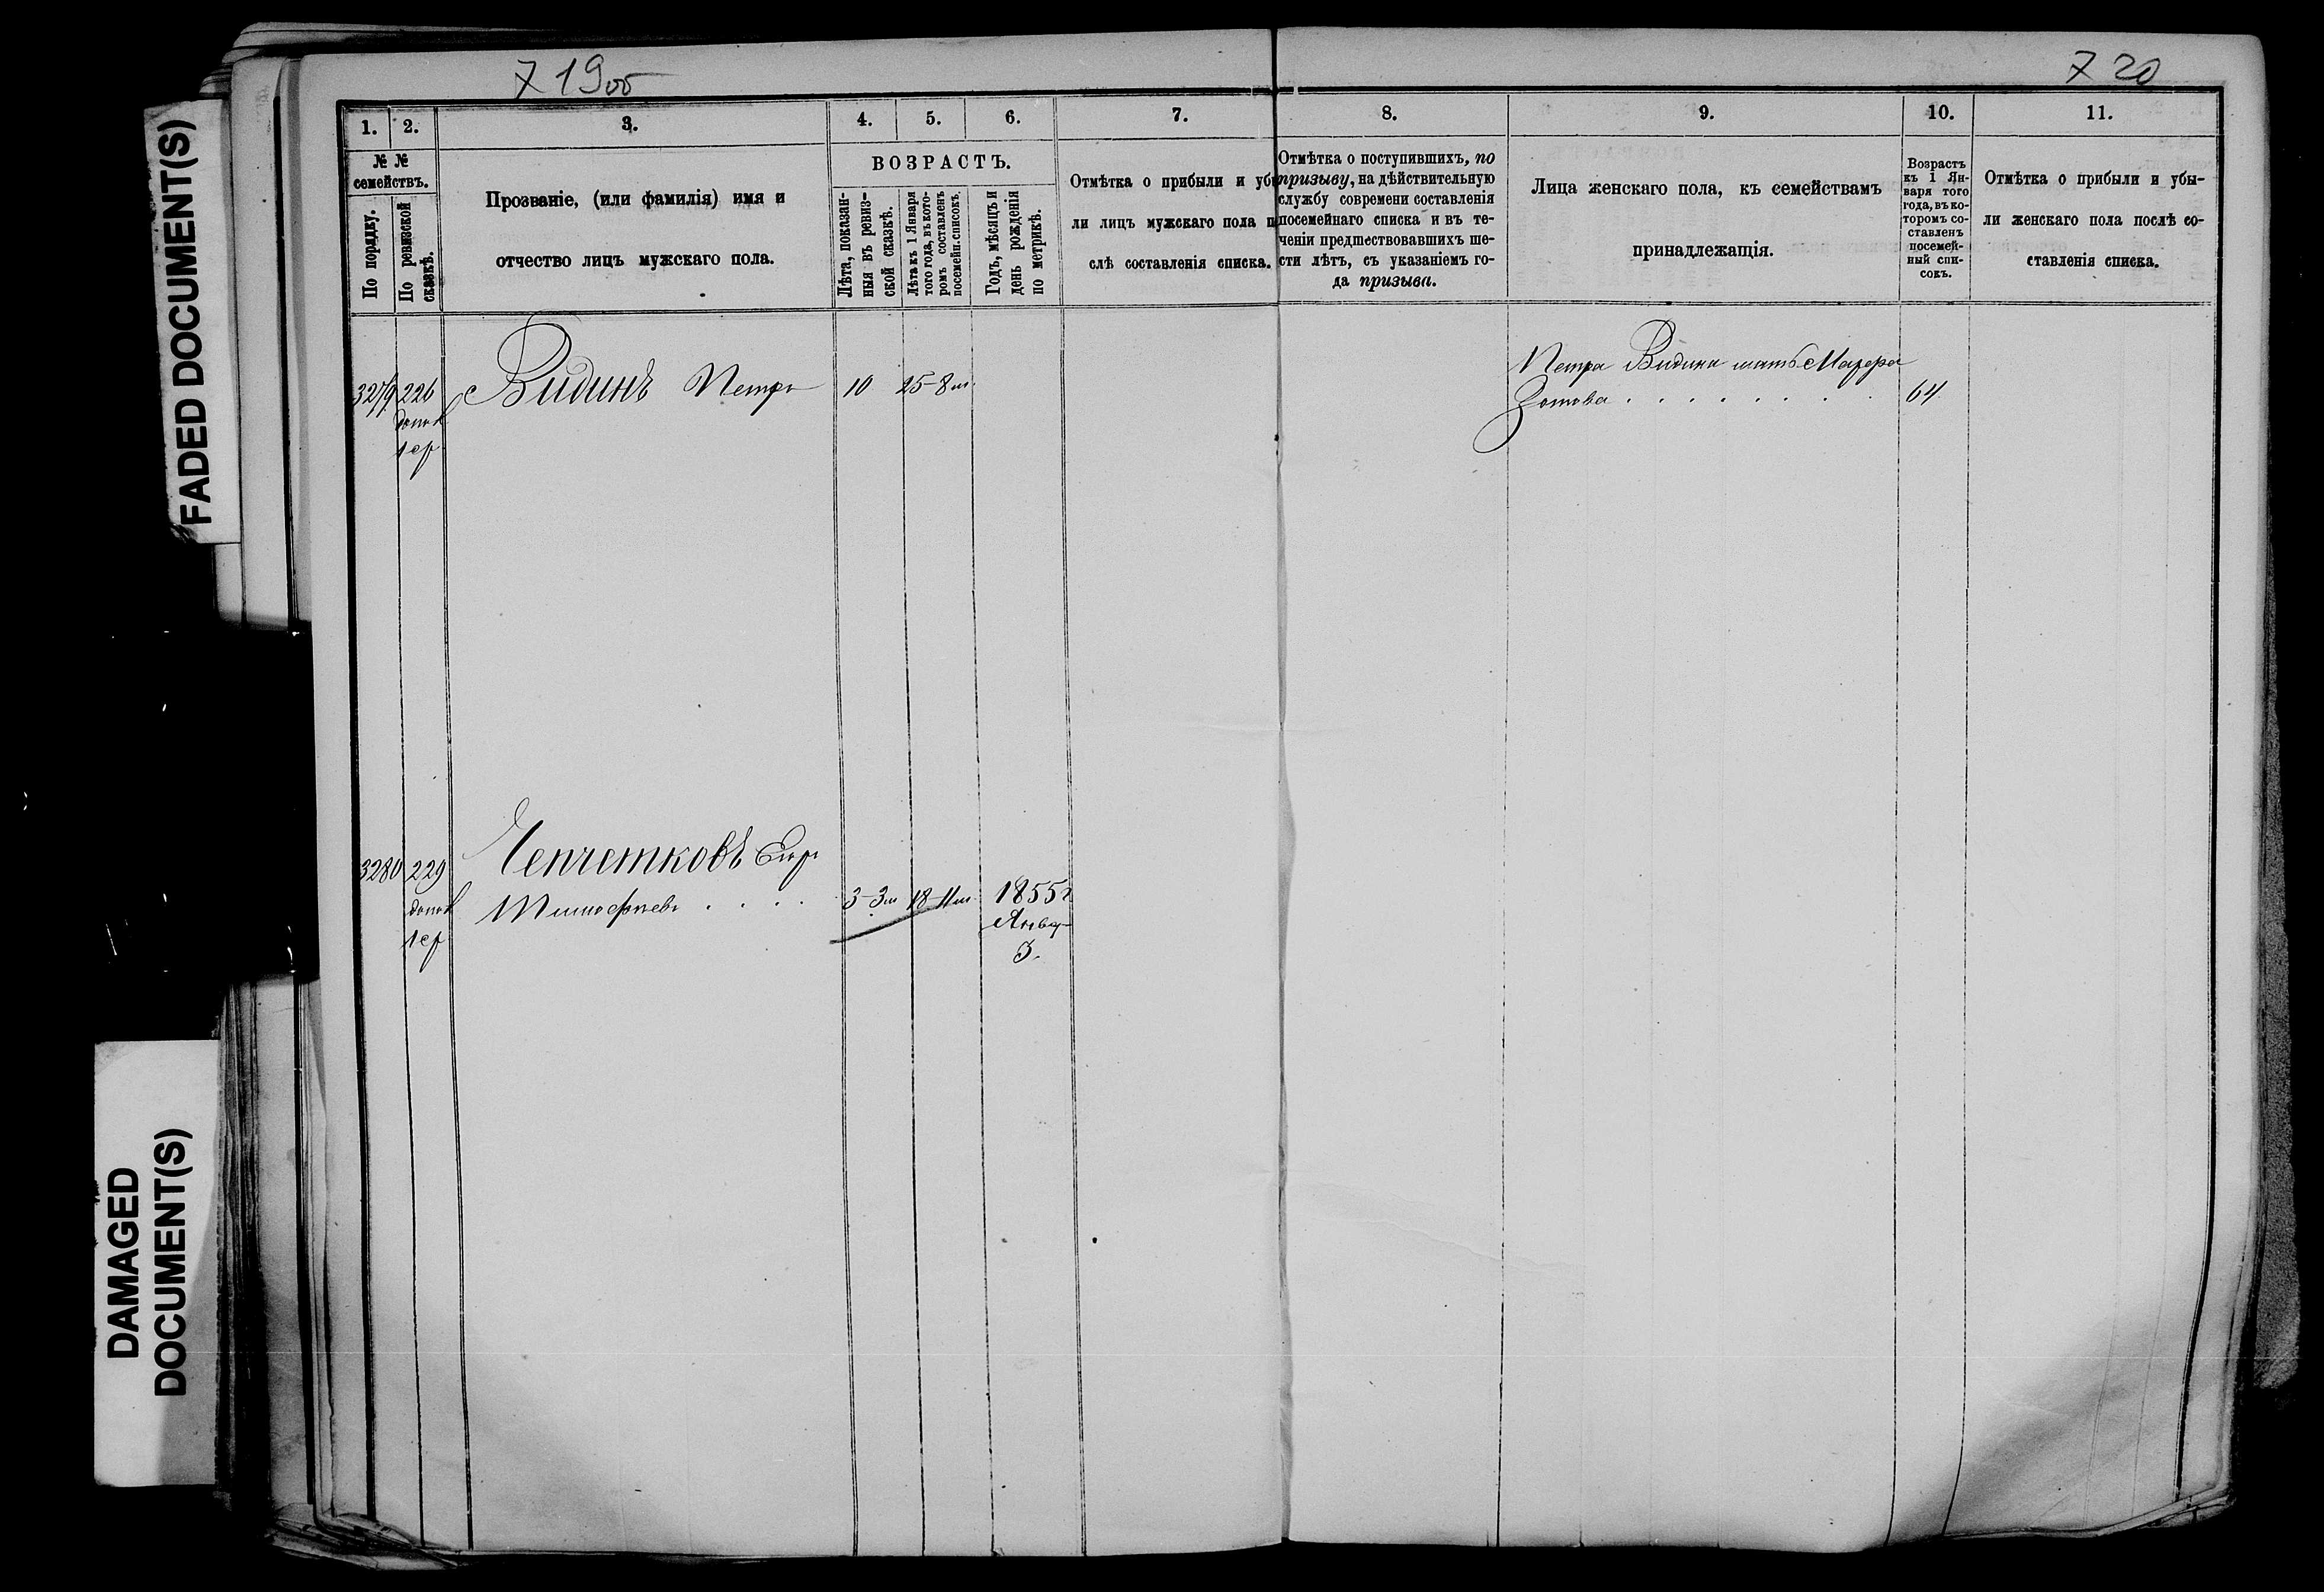 719об
720
FADED DOCUMENT(S)
DAMAGED
DOCUMENT(S)
1.
2.
3.
4.
5.
6.
7.
8.
9.
10.
11.
№ №
семействъ.
По порядку.
По ревизской
сказкѣ.
Прозваніе, (или фамилія) имя и
отчество лицъ мужскаго пола.
ВОЗРАСТЪ.
Лѣта, показан-
ныя въ ревиз-
ской сказкѣ.
Лѣта къ 1 Января
того года, въ кото-
ромъ составленъ
посемейн. списокъ.
Годъ, мѣсяцъ и
день рожденія
по метрикѣ.
Отмѣтка о прибыли и убы
ли лицъ мужскаго пола п
слѣ составленія списка.
Отмѣтка о поступившихъ, по
призыву, на дѣйствительную
службу современи составленія
посемейнаго списка и въ те-
ченіи предшествовавшихъ ше-
сти лѣтъ, съ указаніемъ го-
да призыва.
Лица женскаго пола, къ семействамъ
принадлежащія.
Возрастъ
къ 1 Ян-
варя того
года, въ ко-
торомъ со-
ставленъ
посемей-
ный спи-
сокъ.
Отмѣтка о прибыли и убы-
ли женскаго пола послѣ со-
ставленія списка.
3279 226 Видинъ Петръ 10 25-8м
допол
1ер
Петра Видина мать
Зотова . . . . . . . . 64.
3280 229 Чепчетковъ Егор
допол Тимофѣевъ . . . . 3-3м 18-11м 1855г
1ер Январ
3.